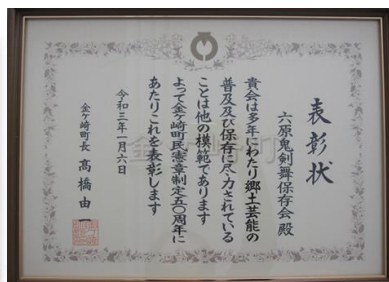 表彰状
六原鬼剣舞保存会殿
貴会は多年にわたり郷土芸能の
普及及び保存に尽力されている
ことは他の模範であります
よって金ケ崎町民憲章制定五〇周年に
あたりこれを表彰します
令和三年一月六日
金ケ崎町長 髙橋由一